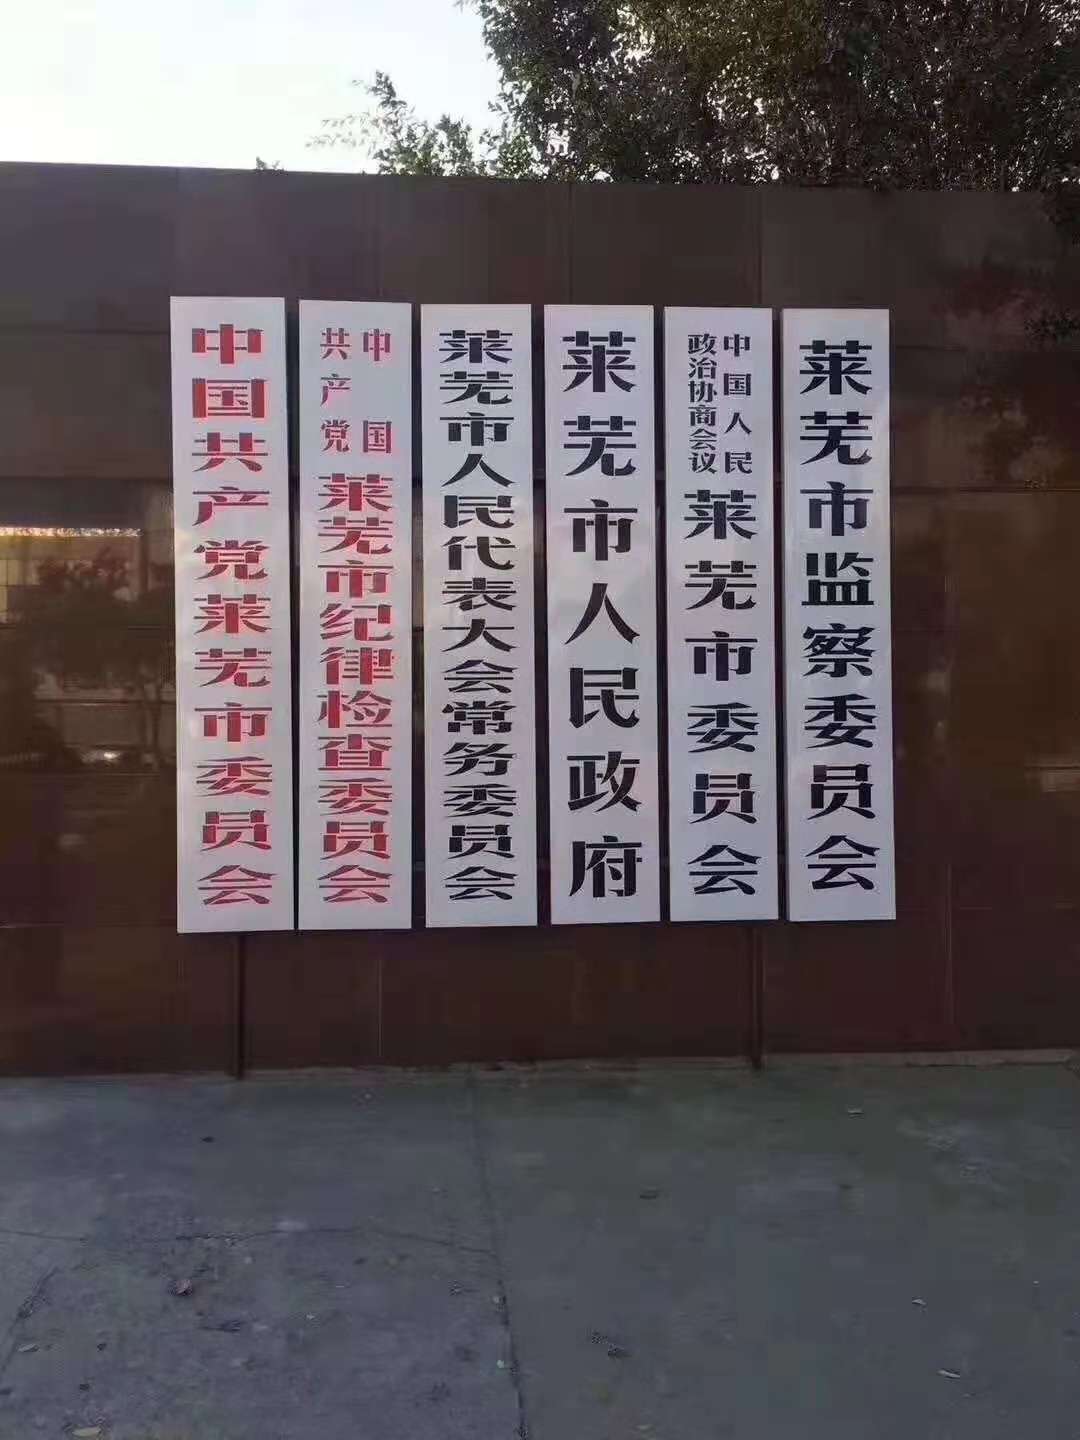 中国共产党莱芜市委员会
中国
共产党
莱芜市纪律检查委员会
莱芜市人民代表大会常务委员会
莱芜市人民政府
中国人民
政治协商会议
莱芜市委员会
莱芜市监察委员会